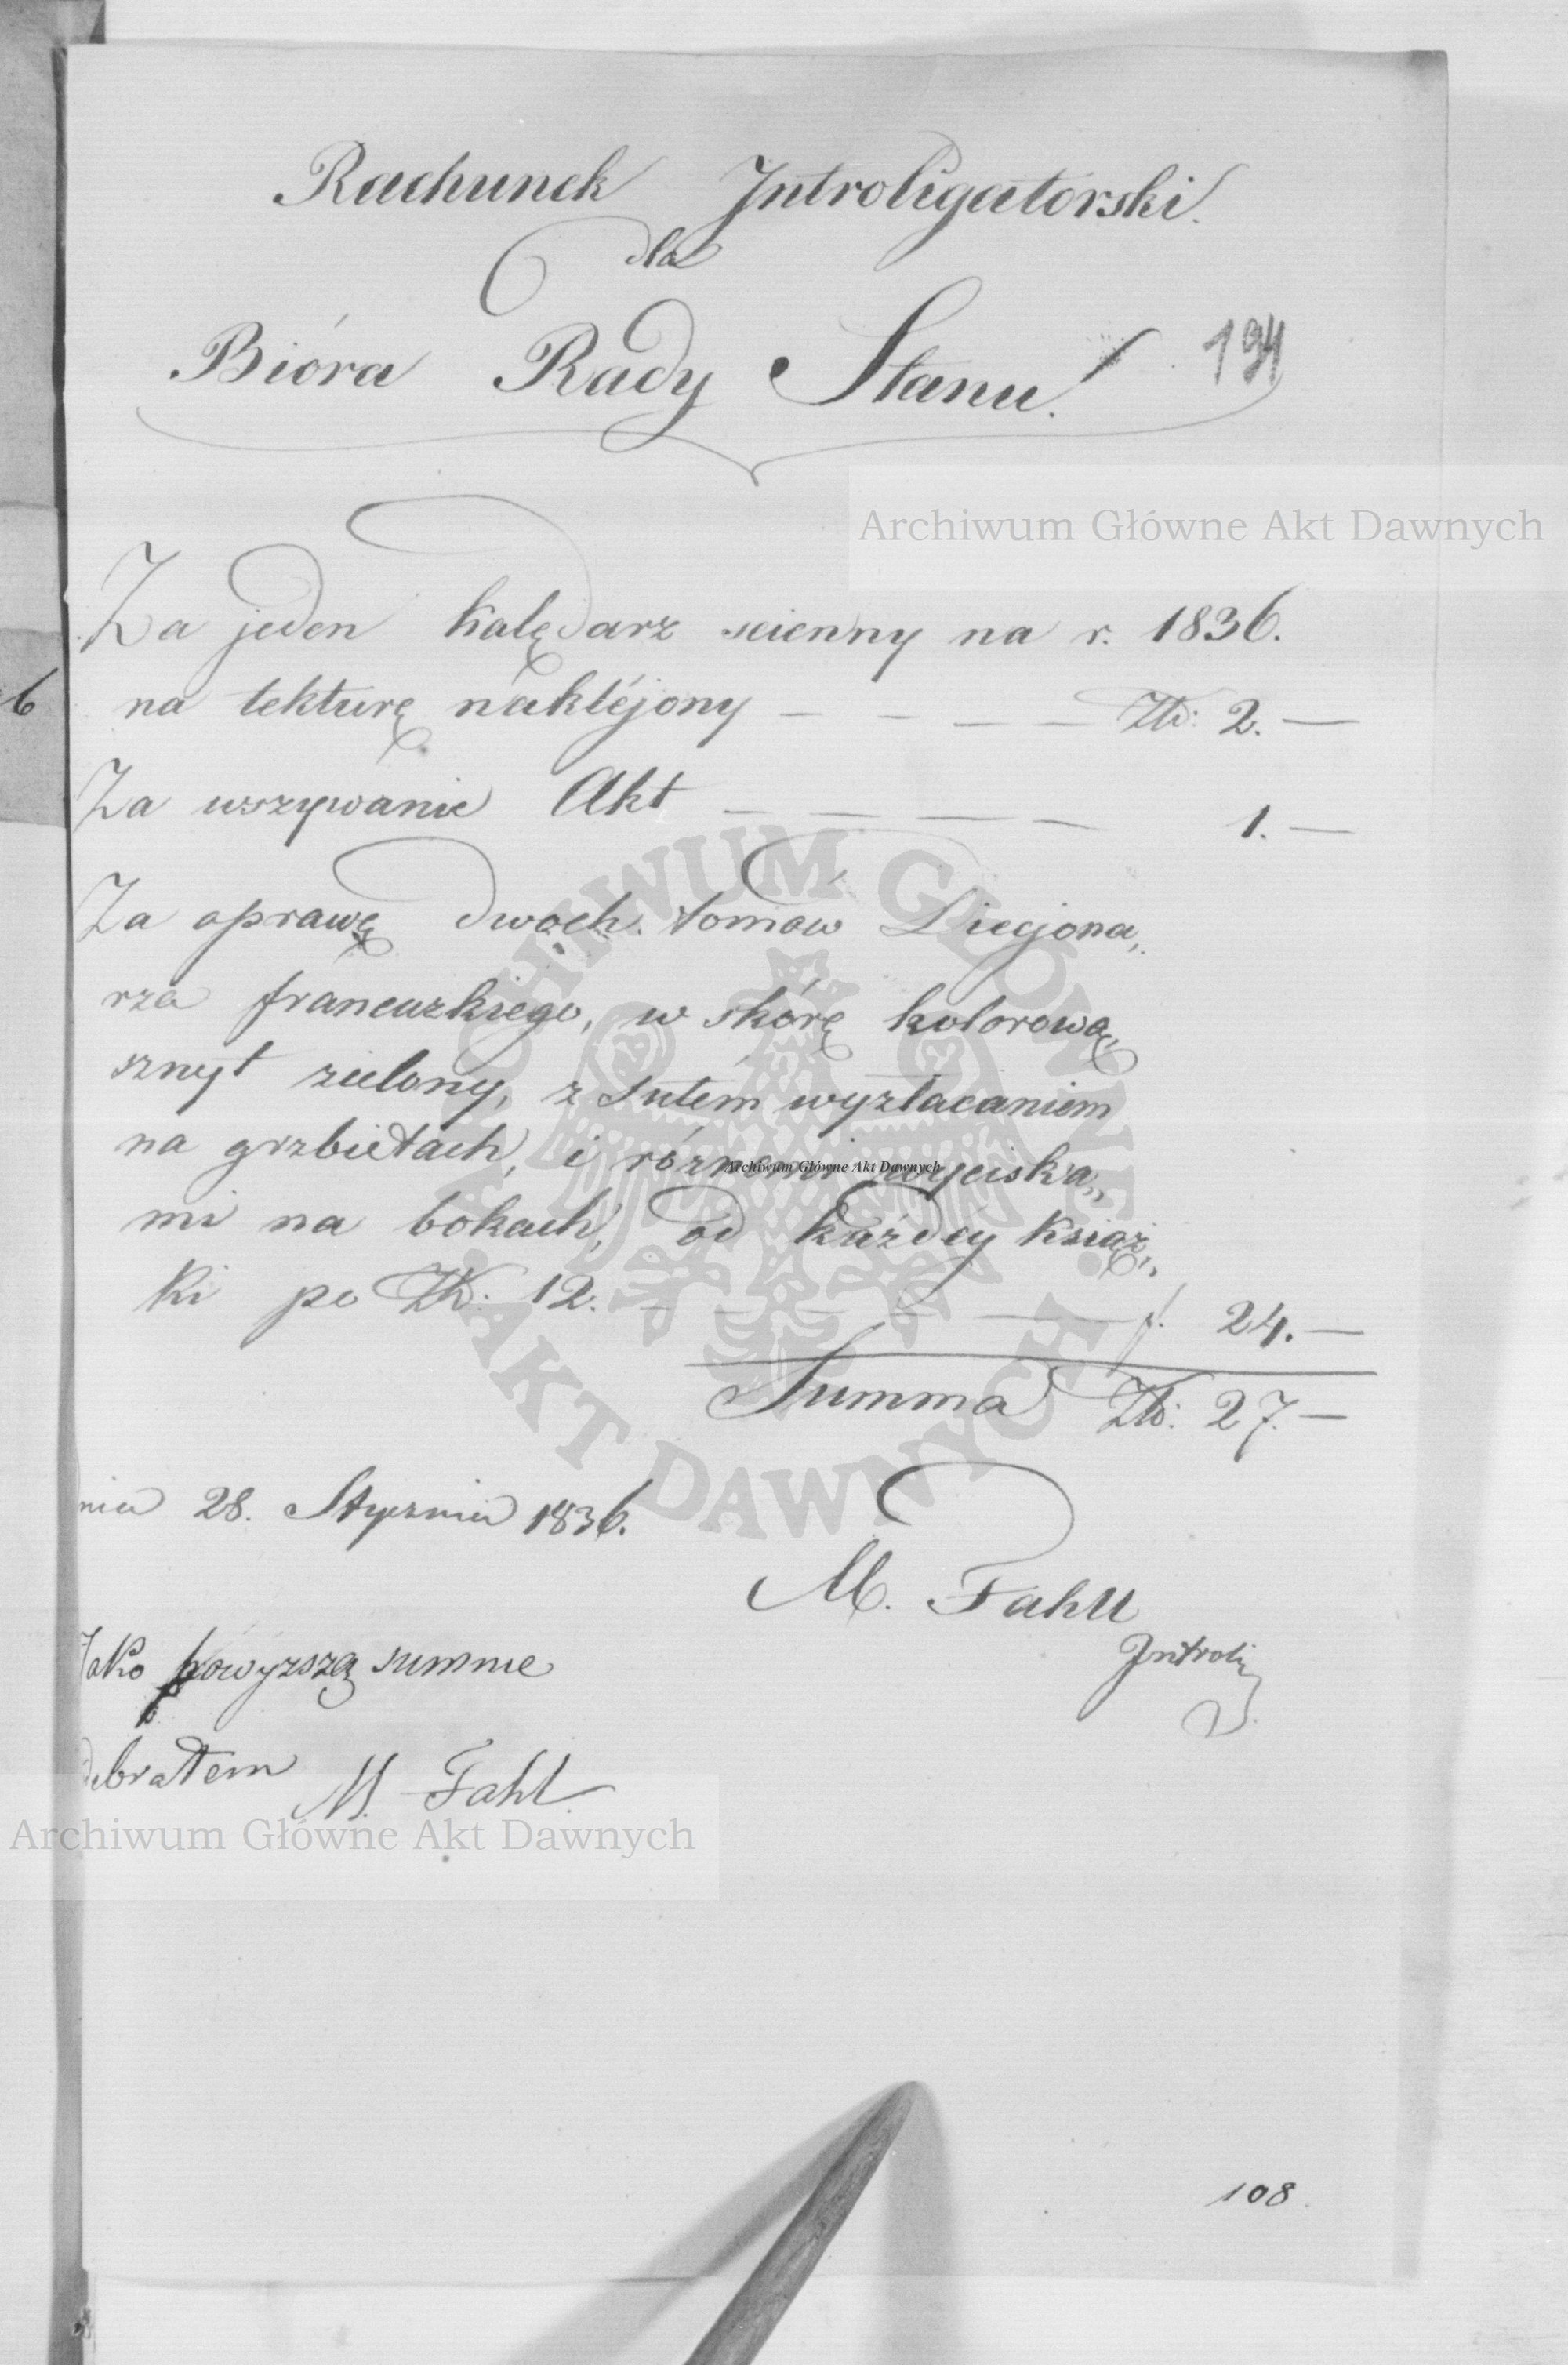 Rachunek Introligatorski.
dla
Bióra Rady Stanu.
194
Archiwum Główne Akt Dawnych
Za jeden kalędarz scienny na r. 1836.
6 na tekturę naklejony — — — — Złł: 2. —
Za wszywanie Akt — — — — 1. —
Za oprawę dwoch tomów Dicjona„
rza francuzkiego, w skórę kolorową,
sznyt zielony, z sutem wyzłacaniem
na grzbietach, i róznemi wyciska„
Archiwum Główne Akt Dawnych
mi na bokach, od każdey książ„
ki po Złł: 12. — — — — — f. 24. —
Summa Złł: 27. —
nia 28. Stycznia 1836.
M. Fahll
Introlig
Jako powyzszą summe
debrałem M. Fahl.
Archiwum Główne Akt Dawnych
108.
ARCHIWUM GŁÓWNE
AKT DAWNYCH